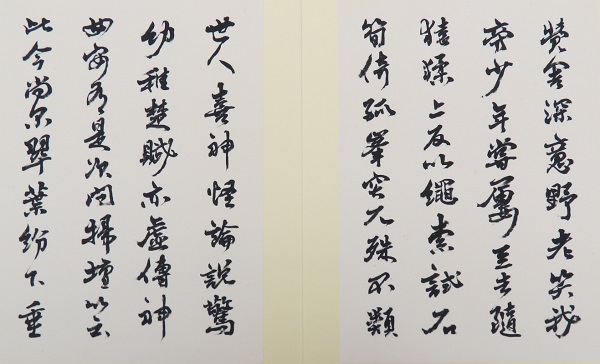 覺含深意野老笑我
旁少年嘗屢至去隨
猿猱上反以繩索試石
筍倚孤峯突兀殊不類
世人喜神怪論說驚
幼稚楚賦亦虛傳神
安有是次問掃壇竹云
此今尚尒翠葉紛下垂